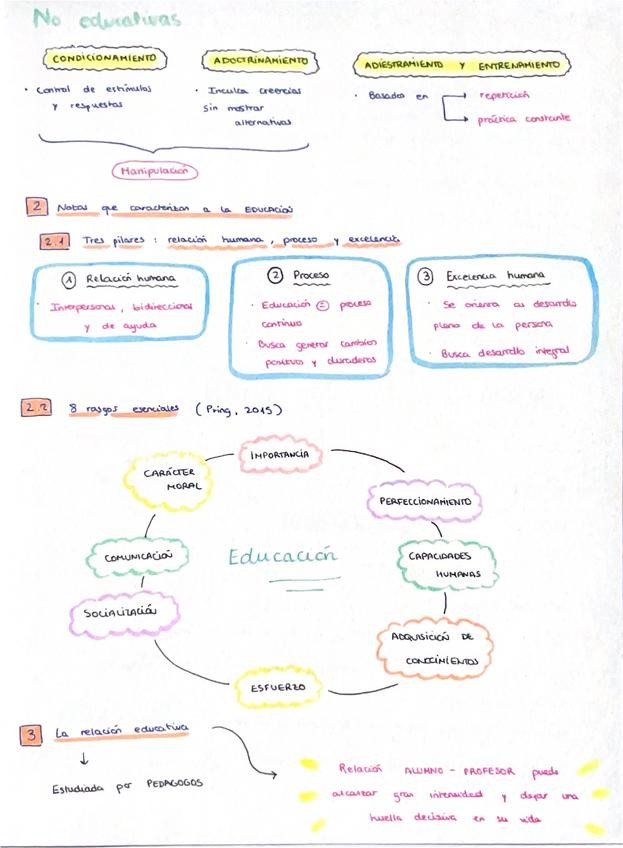 No educativas
CONDICIONAMIENTO
· Control de estímulos
y respuestas
ADOCTRINAMIENTO
· Inculca creencias
sin mostrar
alternativas
ADIESTRAMIENTO Y ENTRENAMIENTO
· Basados en → repetición
→ práctica constante
Manipulación
2 Notas que caracterizan a la EDUCACIÓN
2.1 Tres pilares : relación humana , proceso y excelencia
1 Relación humana
· Interpersonal, bidireccional
y de ayuda
2 Proceso
· Educación = proceso
continuo
· Busca generar cambios
positivos y duraderos
3 Excelencia humana
· Se orienta al desarrollo
pleno de la persona
· Busca desarrollo integral
2.2 8 rasgos esenciales (Pring, 2015)
IMPORTANCIA
PERFECCIONAMIENTO
CAPACIDADES
HUMANAS
ADQUISICIÓN DE
CONOCIMIENTOS
ESFUERZO
SOCIALIZACIÓN
COMUNICACIÓN
CARÁCTER
MORAL
Educación
3 La relación educativa
↓
Estudiada por PEDAGOGOS
Relación ALUMNO - PROFESOR puede
alcanzar gran intensidad y dejar una
huella decisiva en su vida